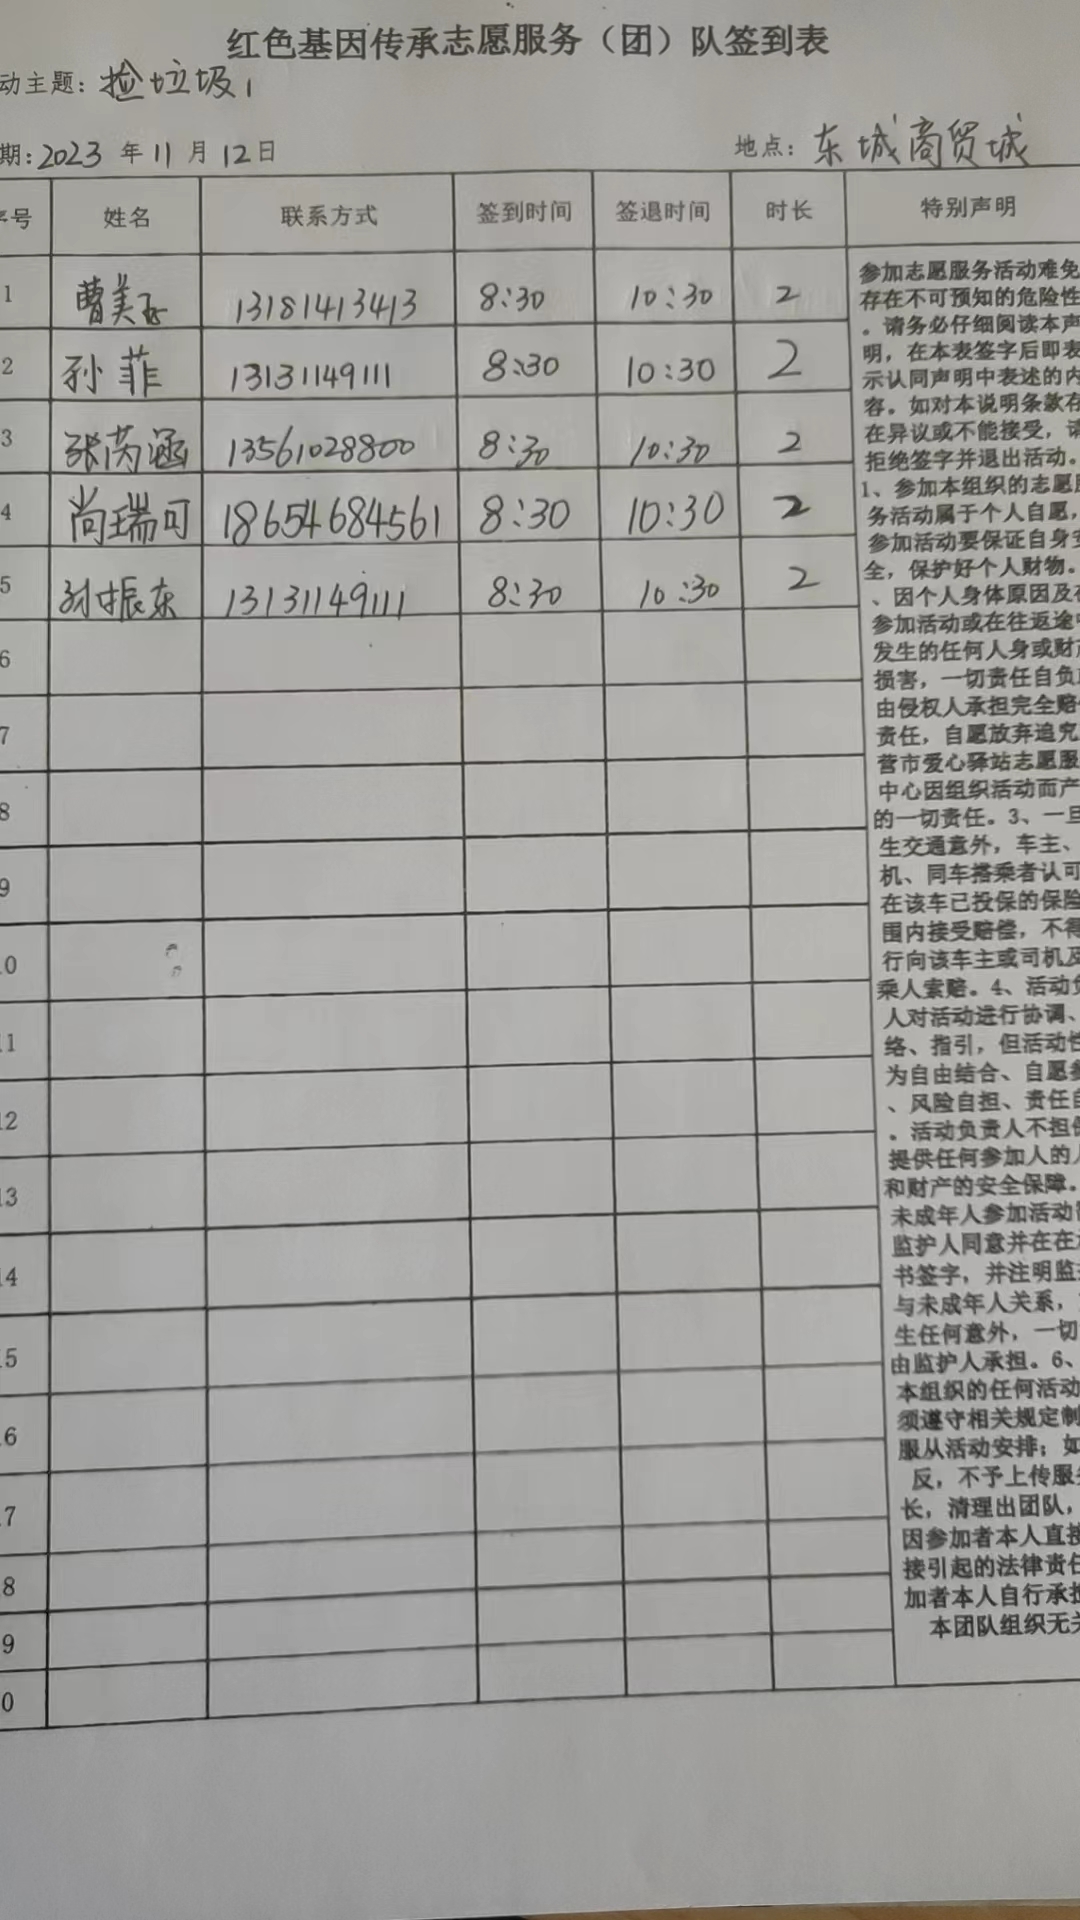 红色基因传承志愿服务（团）队签到表
动主题：捡垃圾
期：2023 年 11 月 12 日 地点：东城商贸城
序号 姓名 联系方式 签到时间 签退时间 时长 特别声明
1 曹美 13181413413 8:30 10:30 2
2 孙菲 13131149111 8:30 10:30 2
3 张芮涵 13561028800 8:30 10:30 2
4 尚瑞可 18654684561 8:30 10:30 2
5 振东 13131149111 8:30 10:30 2
6
7
8
9
10
11
12
13
14
15
16
17
8
9
0
参加志愿服务活动难免
存在不可预知的危险性
。请务必仔细阅读本声
明，在本表签字后即表
示认同声明中表述的内
容。如对本说明条款存
在异议或不能接受，请
拒绝签字并退出活动。
1、参加本组织的志愿服
务活动属于个人自愿，
参加活动要保证自身安
全，保护好个人财物。
、因个人身体原因及在
参加活动或在往返途中
发生的任何人身或财产
损害，一切责任自负
由侵权人承担完全赔偿
责任，自愿放弃追究
营市爱心驿站志愿服
中心因组织活动而产
的一切责任。3、一旦
生交通意外，车主、
机、同车搭乘者认可
在该车已投保的保险
围内接受赔偿，不得
行向该车主或司机及
乘人索赔。4、活动负
人对活动进行协调、
络、指引，但活动性
为自由结合、自愿参
、风险自担、责任自
。活动负责人不担保
提供任何参加人的人
和财产的安全保障。
未成年人参加活动
监护人同意并在在
书签字，并注明监护
与未成年人关系，
生任何意外，一切
由监护人承担。6、
本组织的任何活动
须遵守相关规定制
服从活动安排；如
反，不予上传服务
长，清理出团队，
因参加者本人直接
接引起的法律责任
加者本人自行承担
本团队组织无关